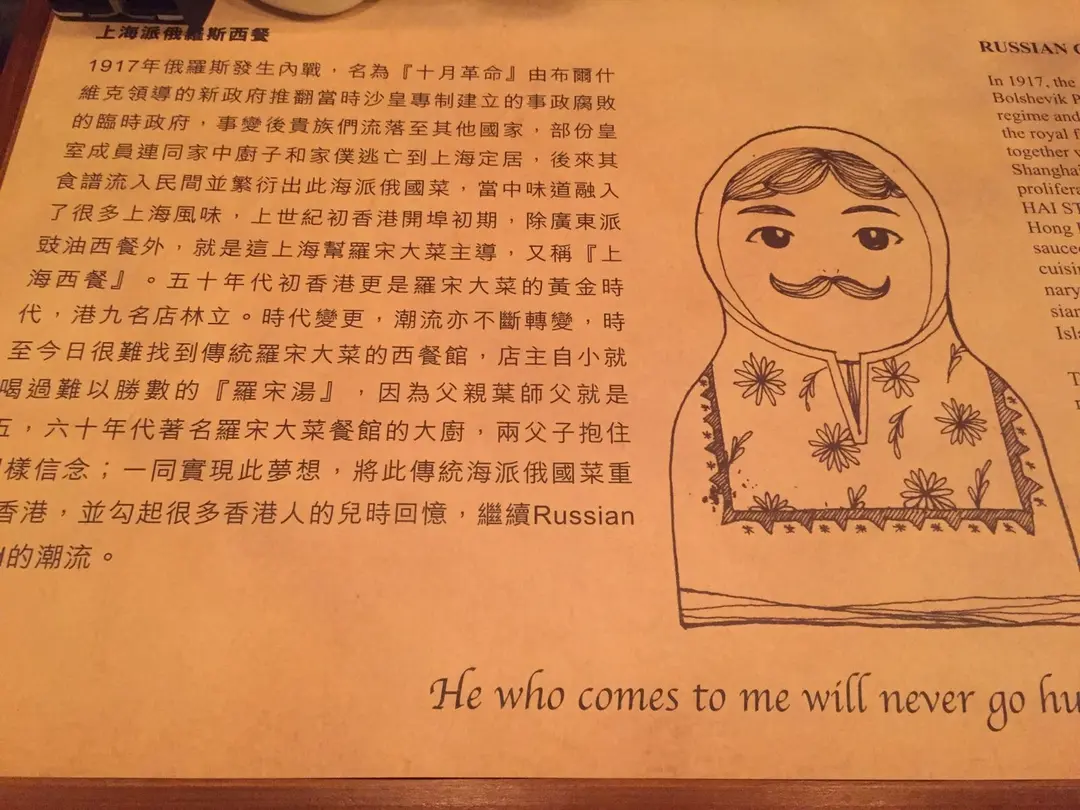 上海派俄羅斯西餐
1917年俄羅斯發生內戰，名為『十月革命』由布爾什
維克領導的新政府推翻當時沙皇專制建立的事政腐敗
的臨時政府，事變後貴族們流落至其他國家，部份皇
室成員連同家中廚子和家僕逃亡到上海定居，後來其
食譜流入民間並繁衍出此海派俄國菜，當中味道融入
了很多上海風味，上世紀初香港開埠初期，除廣東派
豉油西餐外，就是這上海幫羅宋大菜主導，又稱『上
海西餐』。五十年代初香港更是羅宋大菜的黃金時
代，港九名店林立。時代變更，潮流亦不斷轉變，時
至今日很難找到傳統羅宋大菜的西餐館，店主自小就
喝過難以勝數的『羅宋湯』，因為父親葉師父就是
五，六十年代著名羅宋大菜餐館的大廚，兩父子抱住
樣信念；一同實現此夢想，將此傳統海派俄國菜重
香港，並勾起很多香港人的兒時回憶，繼續Russian
的潮流。
RUSSIAN
In 1917, the
Bolshevik P
regime and
the royal f
together
Shangha
prolifera
HAI ST
Hong
sauce
cuisin
nary
sian
Isl
T
He who comes to me will never go hu